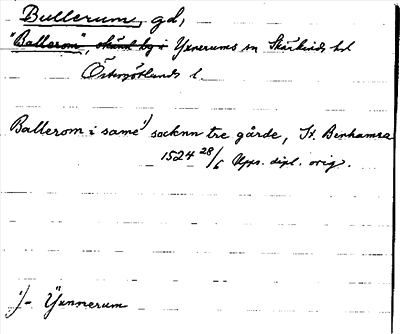 Bullerum, gd,
"Ballerom", okänd by i Yxnerums sn Skärkinds hd
Östergötlands l.
Ballerom i same 1) socknn tre gårde, St. Benhamra
1524 28/6 Upps. dipl. orig.
1) = Yxnnerum